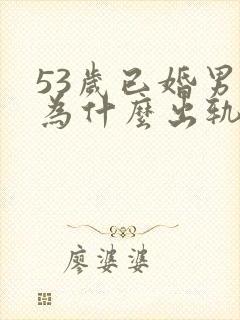 53歲已婚男
為什麼出軌
廖婆婆